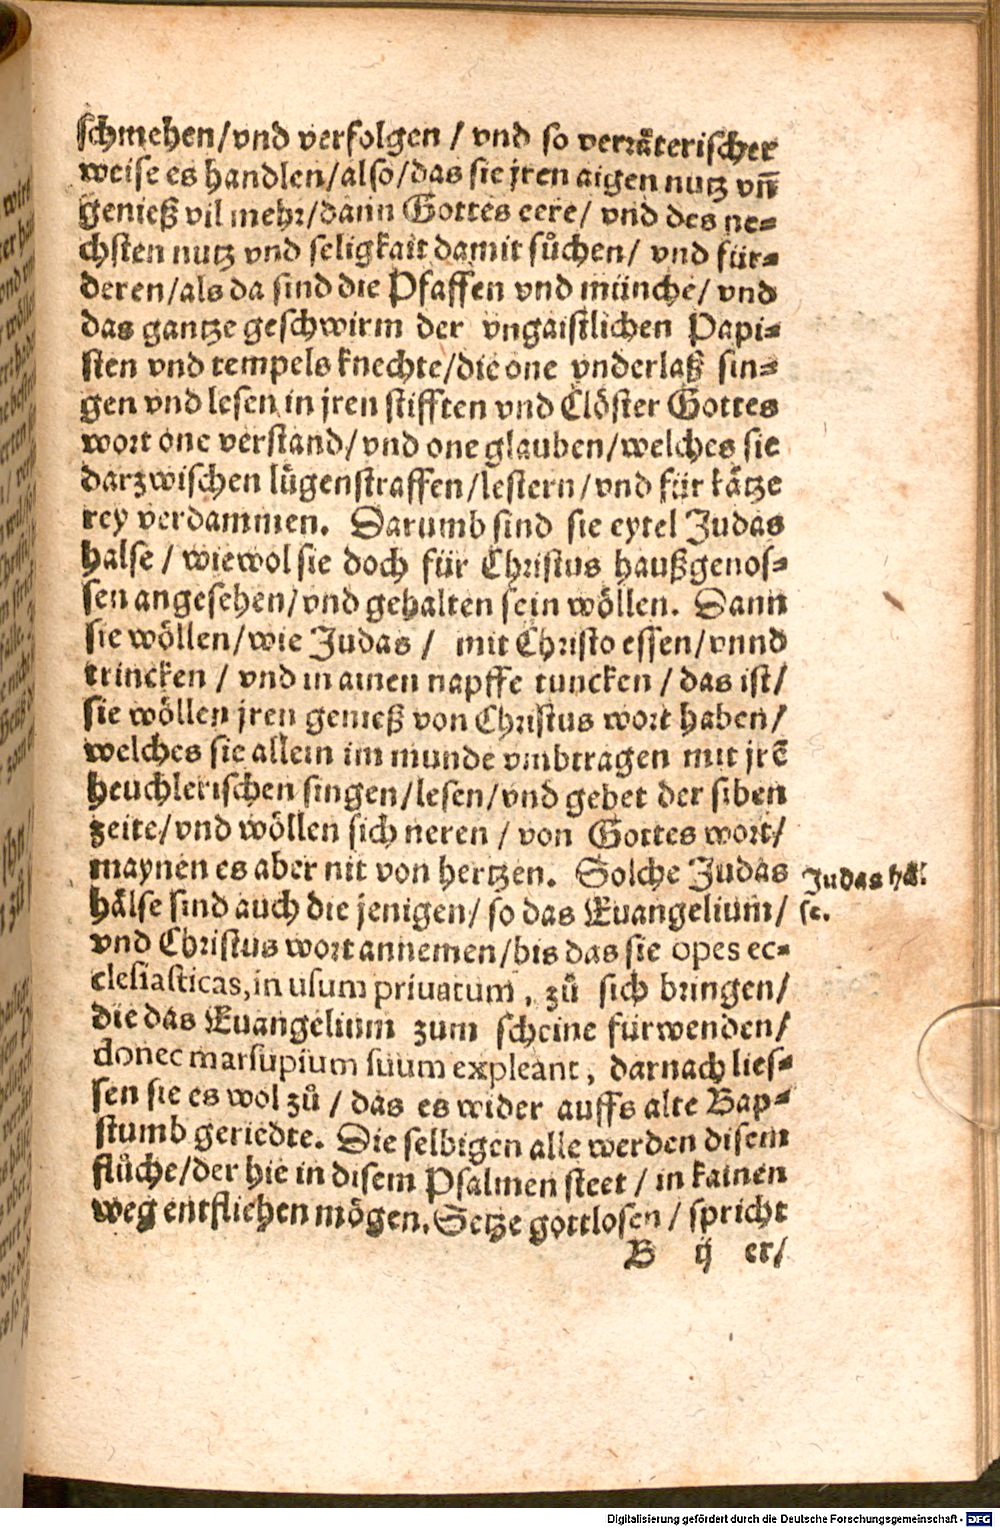 schmehen/vnd verfolgen / vnd so verräterischer
weise es handlen/also/das sie jren aigen nutz vñ
genieß vil mehr/dann Gottes eere/ vnd des ne-
chsten nutz vnd seligkait damit sůchen/ vnd für-
deren/als da sind die Pfaffen vnd münche/ vnd
das gantze geschwirm der vngaistlichen Papi-
sten vnd tempels knechte/die one vnderlaß sin-
gen vnd lesen in jren stifften vnd Clöster Gottes
wort one verstand/vnd one glauben/welches sie
darzwischen lügenstraffen/lestern/vnd für kätze
rey verdammen. Darumb sind sie eytel Judas
halse / wiewol sie doch für Christus haußgenos-
sen angesehen/vnd gehalten sein wöllen. Dann
sie wöllen/wie Judas / mit Christo essen/vnnd
trincken / vnd in ainen napffe tuncken / das ist/
sie wöllen jren genieß von Christus wort haben/
welches sie allein im munde vmbtragen mit jrẽ
heuchlerischen singen/lesen/vnd gebet der siben
zeite/vnd wöllen sich neren / von Gottes wort/
maynen es aber nit von hertzen. Solche Judas
hälse sind auch die jenigen/ so das Euangelium/
vnd Christus wort annemen/bis das sie opes ec-
clesiasticas, in usum priuatum, zů sich bringen/
die das Euangelium zum scheine fürwenden/
donec marsupium suum expleant, darnach lies-
sen sie es wol zů / das es wider auffs alte Bap-
stumb geriedte. Die selbigen alle werden disem
flůche/der hie in disem Psalmen steet / in kainen
weg entfliehen mögen. Setze gottlosen / spricht
B ij er/
Judas häl
se.
Digitalisierung gefördert durch die Deutsche Forschungsgemeinschaft - DFG